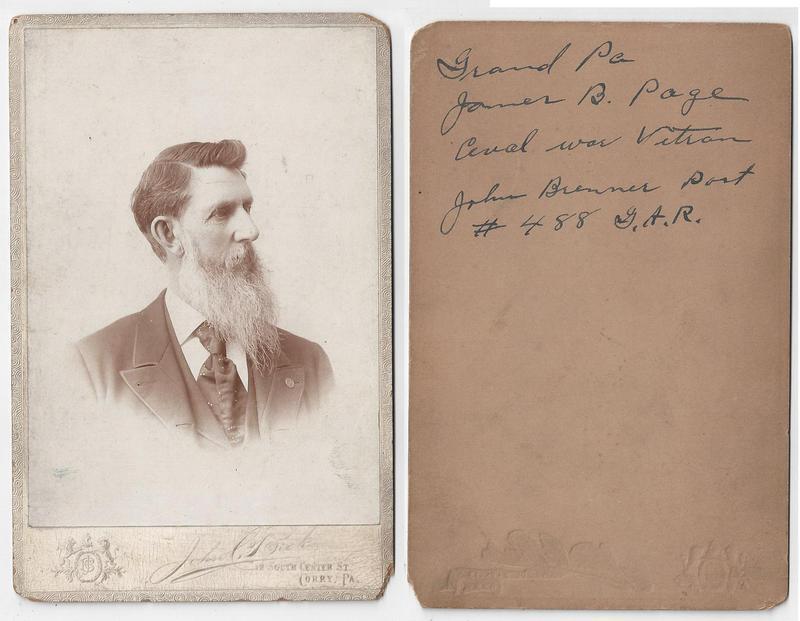 John
South Center St.
Corry, Pa.
Grand Pa
James B. Page
Ceval war Vitran
John Brenner Post
# 488 G.A.R.